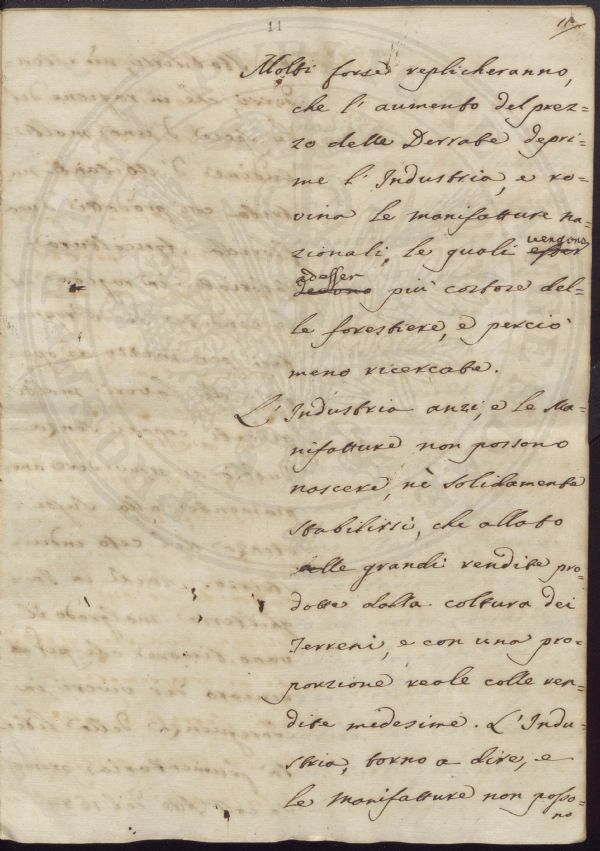 11
11
Molti forse replicheranno,
che l'aumento del prez=
zo delle Derrate depri=
me l'Industria, e ro=
vina le manifatture na=
zionali, le quali vengono
ad esser più costose del=
le forestiere, e perciò
meno ricercate.
L'Industria anzi, e le Ma=
nifatture non possono
nascere, nè solidamente
stabilirsi, che allato
alle grandi rendite pro=
dotte dalla coltura dei
Terreni, e con una pro=
porzione reale colle ren=
dite medesime. L'Indu=
stria, torno a dire, e
le Manifatture non posso=
no